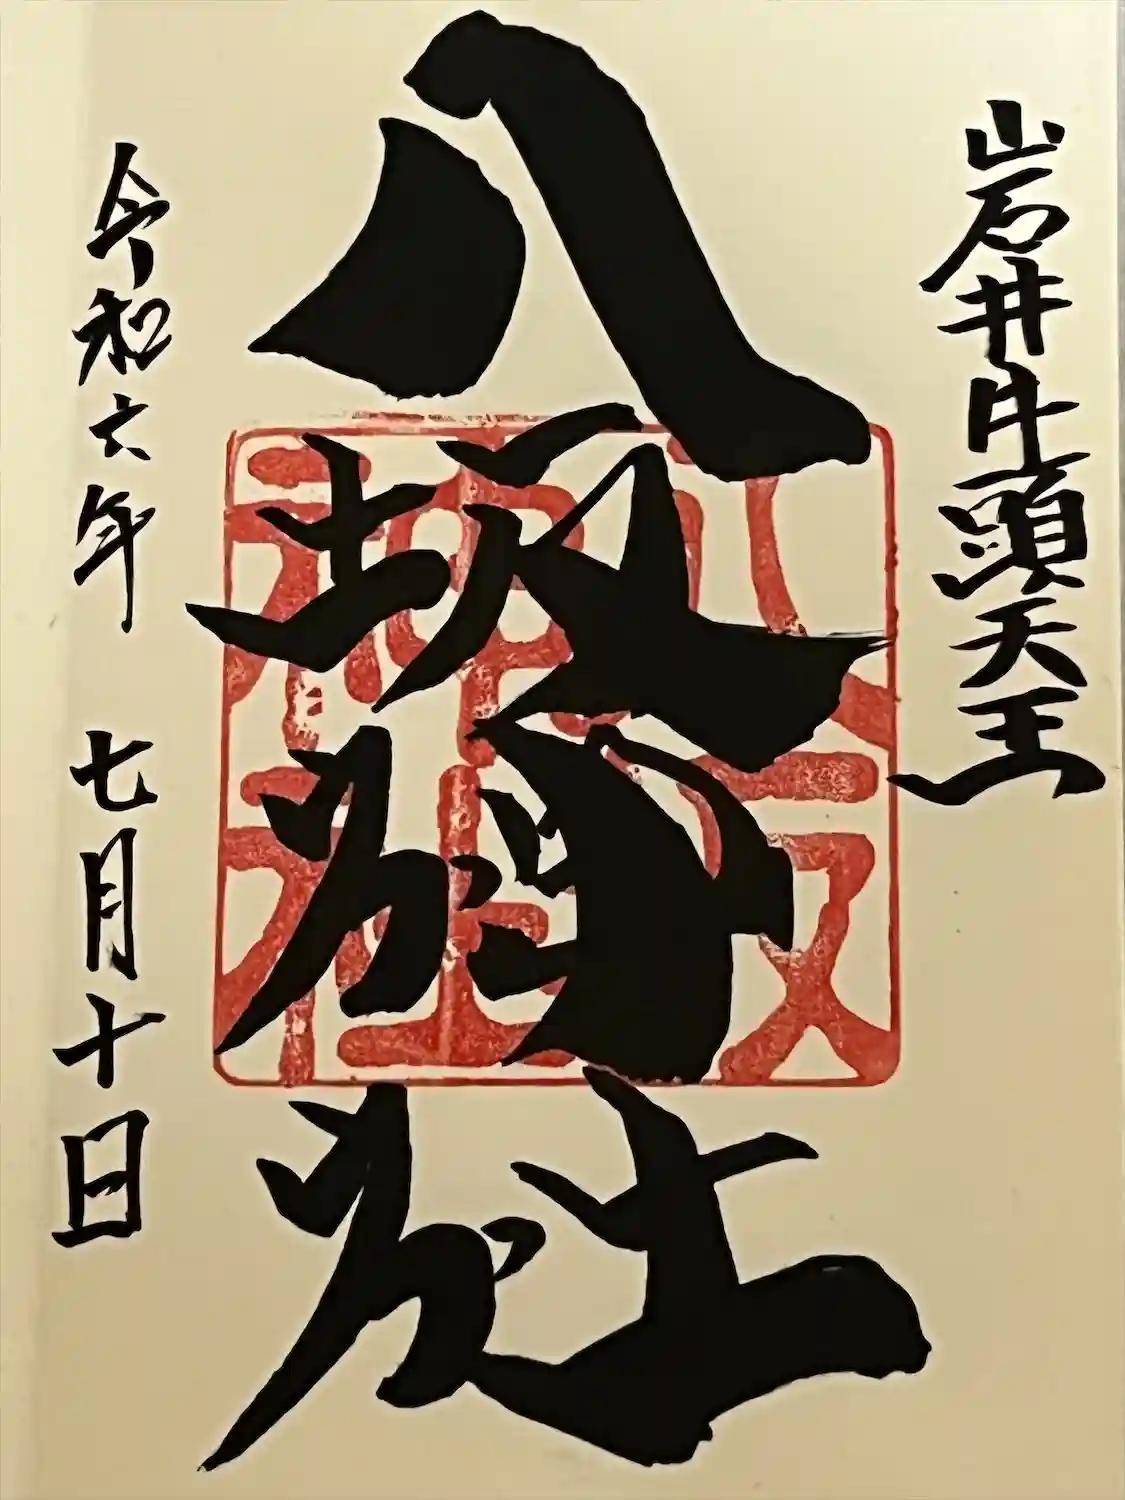 岩井牛頭天王
八坂神社
八坂神社
令和六年 七月十日